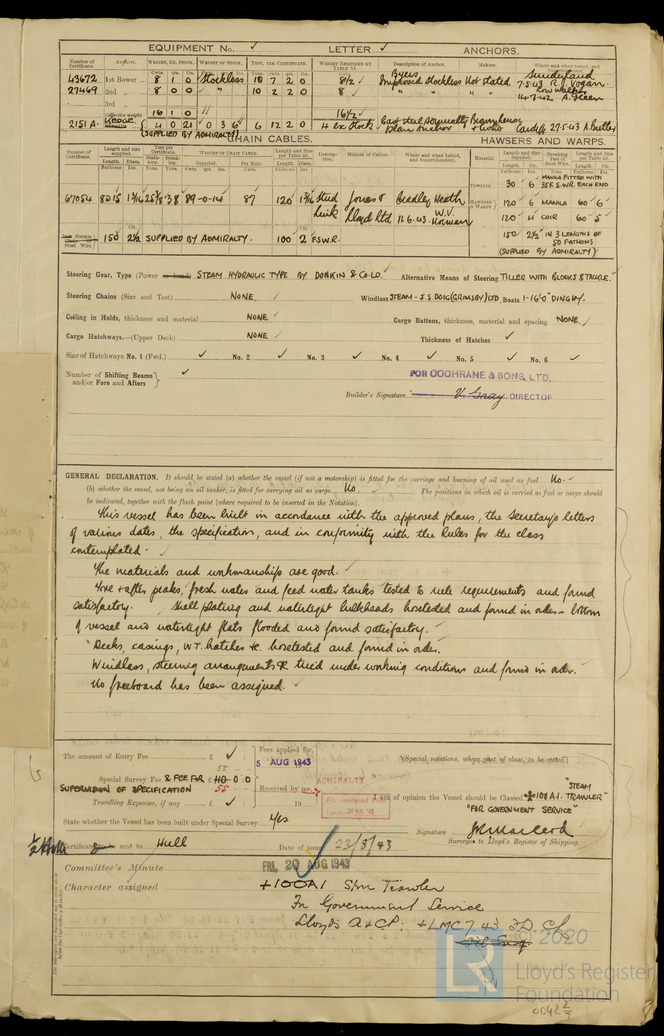 EQUIPMENT No. ✓ LETTER ✓ ANCHORS.
Number of Certificate. Anchors. WEIGHT, EX. STOCK. WEIGHT OF STOCK. TEST, PER CERTIFICATE. WEIGHT REQUIRED BY TABLE 53. Description of Anchor. Makers. Where and when tested, and
Cwts. qrs. lbs. Tons. Cwts. qrs. lbs. Cwts.
43672 1st Bower 8 1 0 Stockless 10 7 2 0 8½ ✓ Byers Improved Stockless Not Stated Sunderland 7-5-43 R.J. Vogan.
27469 2nd „ 8 0 0 10 2 2 0 8 ✓ „ „ „ Low Walker 14-7-42
3rd „
Collective weight 16 1 0 16½ ✓
2151 A. KEDGE 4 0 21 0 3 6 6 12 2 0 4 ex Stock Cast steel Admiralty plan Anchor Cardiff 27-5-43
(SUPPLIED BY ADMIRALTY)
CHAIN CABLES. HAWSERS AND WARPS.
Number of Certificate. Length and size supplied. Test per Certificate. WEIGHT OF CHAIN CABLE. Length and size per Table 53. Description. Makers of Cables. Where and when tested, and Superintendent. Material. Length and Size supplied. Breaking Test of Steel Wire. Length and Size per Table 53.
Fathoms Ins. Supplied. Per Rule.
MANILA FITTED WITH
TOWLINE 30 6 35 F. S.W.R. EACH END
67054 8215 1 3/16 25 3/8 38 89-0-14 87 120 1 3/16 Stud Link Jones & Lloyd Ltd Bradley Heath 11.6.43 W.V. Norman
HAWSERS & WARPS 120 6 MANILA 60 6
120 4 COIR 60 5
Steel Wire 150 2½ SUPPLIED BY ADMIRALTY. 100 2 F.S.W.R. 150 2½ IN 3 LENGTHS OF
50 FATHOMS
(SUPPLIED BY ADMIRALTY)
Steering Gear, Type (Power or hand) STEAM HYDRAULIC TYPE BY DONKIN & CO. LD. Alternative Means of Steering TILLER WITH BLOCKS & TACKLE.
Steering Chains (Size and Test) NONE. ✓ Windlass STEAM - J.S. DOIG (GRIMSBY) LTD. Boats 1-16'0" DINGHY.
Ceiling in Holds, thickness and material NONE ✓ Cargo Battens, thickness, material and spacing NONE.
Cargo Hatchways.—(Upper Deck) NONE ✓ Thickness of Hatches ✓
Size of Hatchways No. 1 (Fwd.) ✓ No. 2 ✓ No. 3 ✓ No. 4 ✓ No. 5 ✓ No. 6 ✓
Number of Shifting Beams and/or Fore and Afters } ✓
FOR COCHRANE & SONS, LTD.
Builder's Signature V. Gray DIRECTOR
GENERAL DECLARATION. It should be stated (a) whether the vessel (if not a motorship) is fitted for the carriage and burning of oil used as fuel No. ✓
(b) whether the vessel, not being an oil tanker, is fitted for carrying oil as cargo No. ✓ The positions in which oil is carried as fuel or cargo should
be indicated, together with the flash point (where required to be inserted in the Notation).
This vessel has been built in accordance with the approved plans, the Secretary's letters
of various dates, the specification, and in conformity with the Rules for the class
contemplated. ✓
The materials and workmanship are good. ✓
Fore & after peaks, fresh water and feed water tanks tested to rule requirements and found
satisfactory. Shell plating and watertight bulkheads hosetested and found in order - bottom
of vessel and watertight flats flooded and found satisfactory. ✓
Decks, casings, W.T. hatches &c. hosetested and found in order.
Windlass, steering arrangements &c tried under working conditions and found in order.
No freeboard has been assigned. ✓
The amount of Entry Fee £ ✓ Fees applied for, (Special notations, where part of class, to be stated.)
55 5 AUG 1943
Special Survey Fee & FEE FOR £ 110 0 0
SUPERVISION OF SPECIFICATION 55 Received by me, ADMIRALTY
I am of opinion the Vessel should be Classed ✠100 A1. "STEAM TRAWLER"
Travelling Expenses, if any £ ✓ 19 "FOR GOVERNMENT SERVICE"
State whether the Vessel has been built under Special Survey Yes
Signature
Surveyor to Lloyd's Register of Shipping.
Certificate to be sent to Hull Date of issue 23/8/43
Committee's Minute FRI. 20 AUG 1943
Character assigned +100A1 Stm Trawler
For Government Service
Lloyds A & CP. +LMC 7.43
© 2020
LR
Lloyd's Register
Foundation